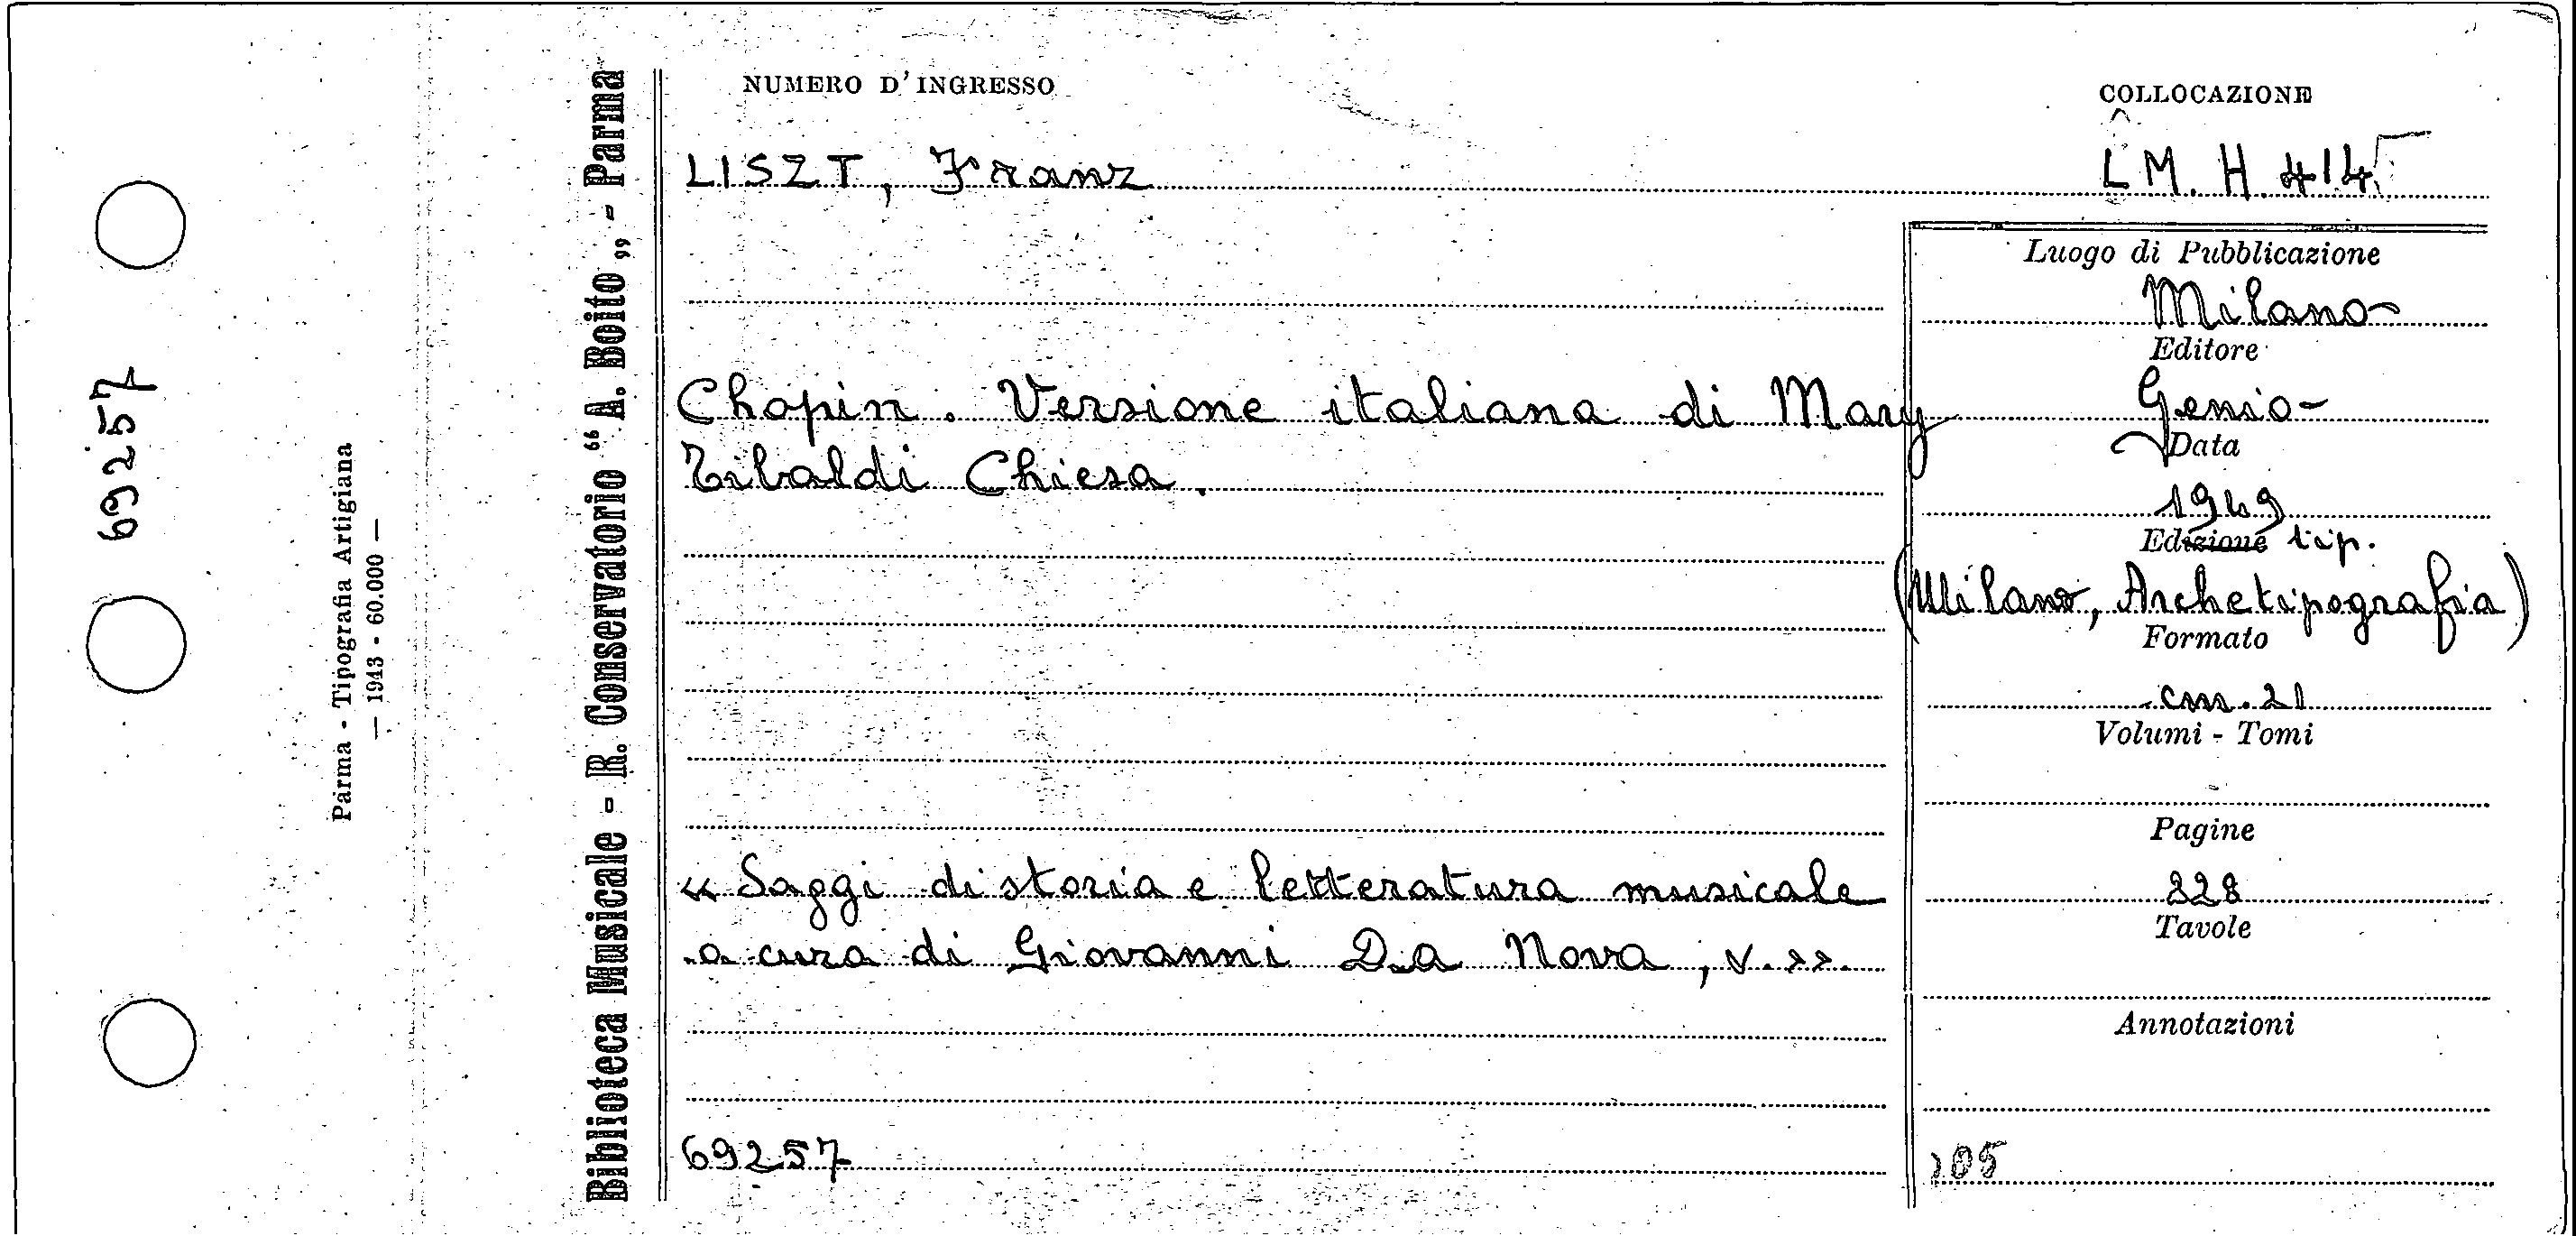 NUMERO D'INGRESSO
COLLOCAZIONE
LISZT, Franz
LM. H 415
Luogo di Pubblicazione
Milano
Editore
Chopin. Versione italiana di Mary
Genio
Data
Tibaldi Chiesa.
1949
Edizione tip.
(Milano, Archetipografia)
Formato
cm. 21
Volumi - Tomi
Pagine
« Saggi di storia e letteratura musicale
228
a cura di Giovanni Da Nova, v. »
Tavole
Annotazioni
69257
105
Biblioteca Musicale - R. Conservatorio “ A. Boito „ - Parma
Parma - Tipografia Artigiana
— 1943 - 60.000 —
69257